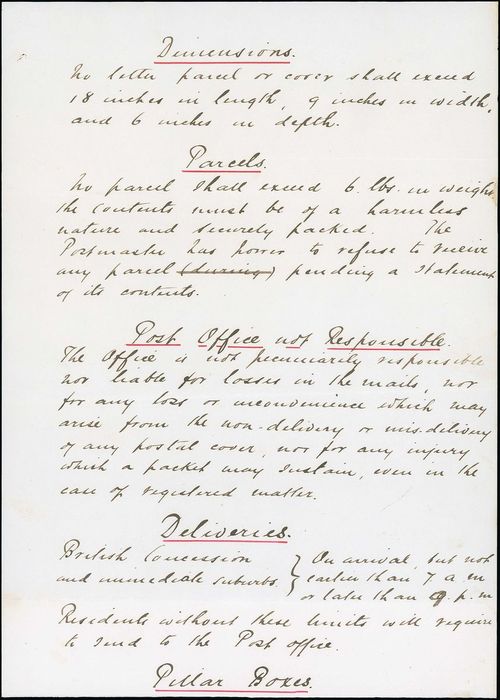 Dimensions.
No letter parcel or cover shall exceed
18 inches in length, 9 inches in width,
and 6 inches in depth.
Parcels.
No parcel shall exceed 6. lbs. in weight
the contents must be of a harmless
nature and securely packed. The
Postmaster has power to refuse to receive
any parcel (during) pending a statement
of its contents.
Post Office not Responsible.
The Office is not pecuniarily responsible
nor liable for losses in the mails, nor
for any loss or inconvenience which may
arise from the non-delivery or mis-delivery
of any postal cover, nor for any injury
which a packet may sustain, even in the
case of registered matter.
Deliveries.
British Concession } On arrival, but not
and immediate suburbs. } earlier than 7 a.m
or later than 9. p.m
Residents without these limits will require
to send to the Post office.
Pillar Boxes.